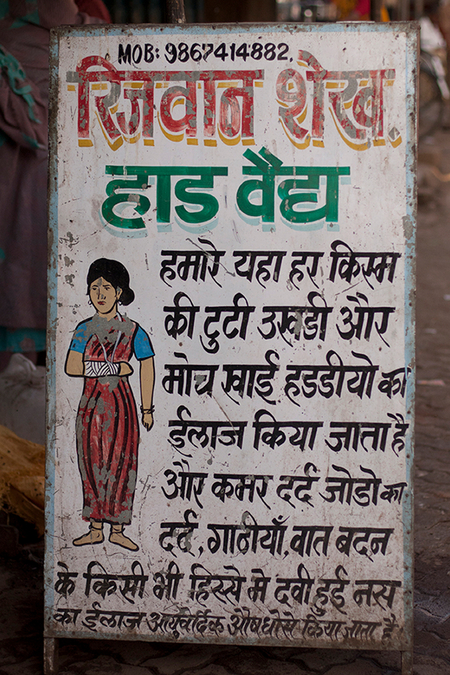 MOB: 9867414882.
रिजवान शेख.
हाड वैद्य
हमारे यहा हर किस्म
की टुटी उखडी और
मोच खाई हडडीयो का
ईलाज किया जाता है
और कमर दर्द जोडो का
दर्द, गाठीयाँ, वात बदन
के किसी भी हिस्से मे दवी हुई नस
का ईलाज आर्युवेदिक औषधोसे किया जाता है